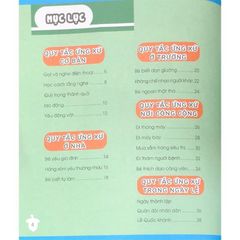 MỤC LỤC
QUY TẮC ỨNG XỬ
CƠ BẢN
Gọi và nghe điện thoại 6
Học cách lắng nghe 8
Quý trọng thành quả
lao động 10
Yêu động vật 12
QUY TẮC ỨNG XỬ
Ở NHÀ
Bé yêu gia đình 14
Hàng xóm yêu thương nhau 16
Bé biết tự làm 18
QUY TẮC ỨNG XỬ
Ở TRƯỜNG
Bé biết dọn giường 20
Không chế nhạo người khác 22
Bé ngoan thật thà 24
QUY TẮC ỨNG XỬ
NƠI CÔNG CỘNG
Đi thang máy 26
Đi máy bay 28
Mua sắm trong siêu thị 30
Đi thăm người bệnh 32
Bé thích dạo công viên 34
QUY TẮC ỨNG XỬ
TRONG NGÀY LỄ
Ngày thành lập
Quân đội nhân dân 36
Lễ Quốc khánh 38
4